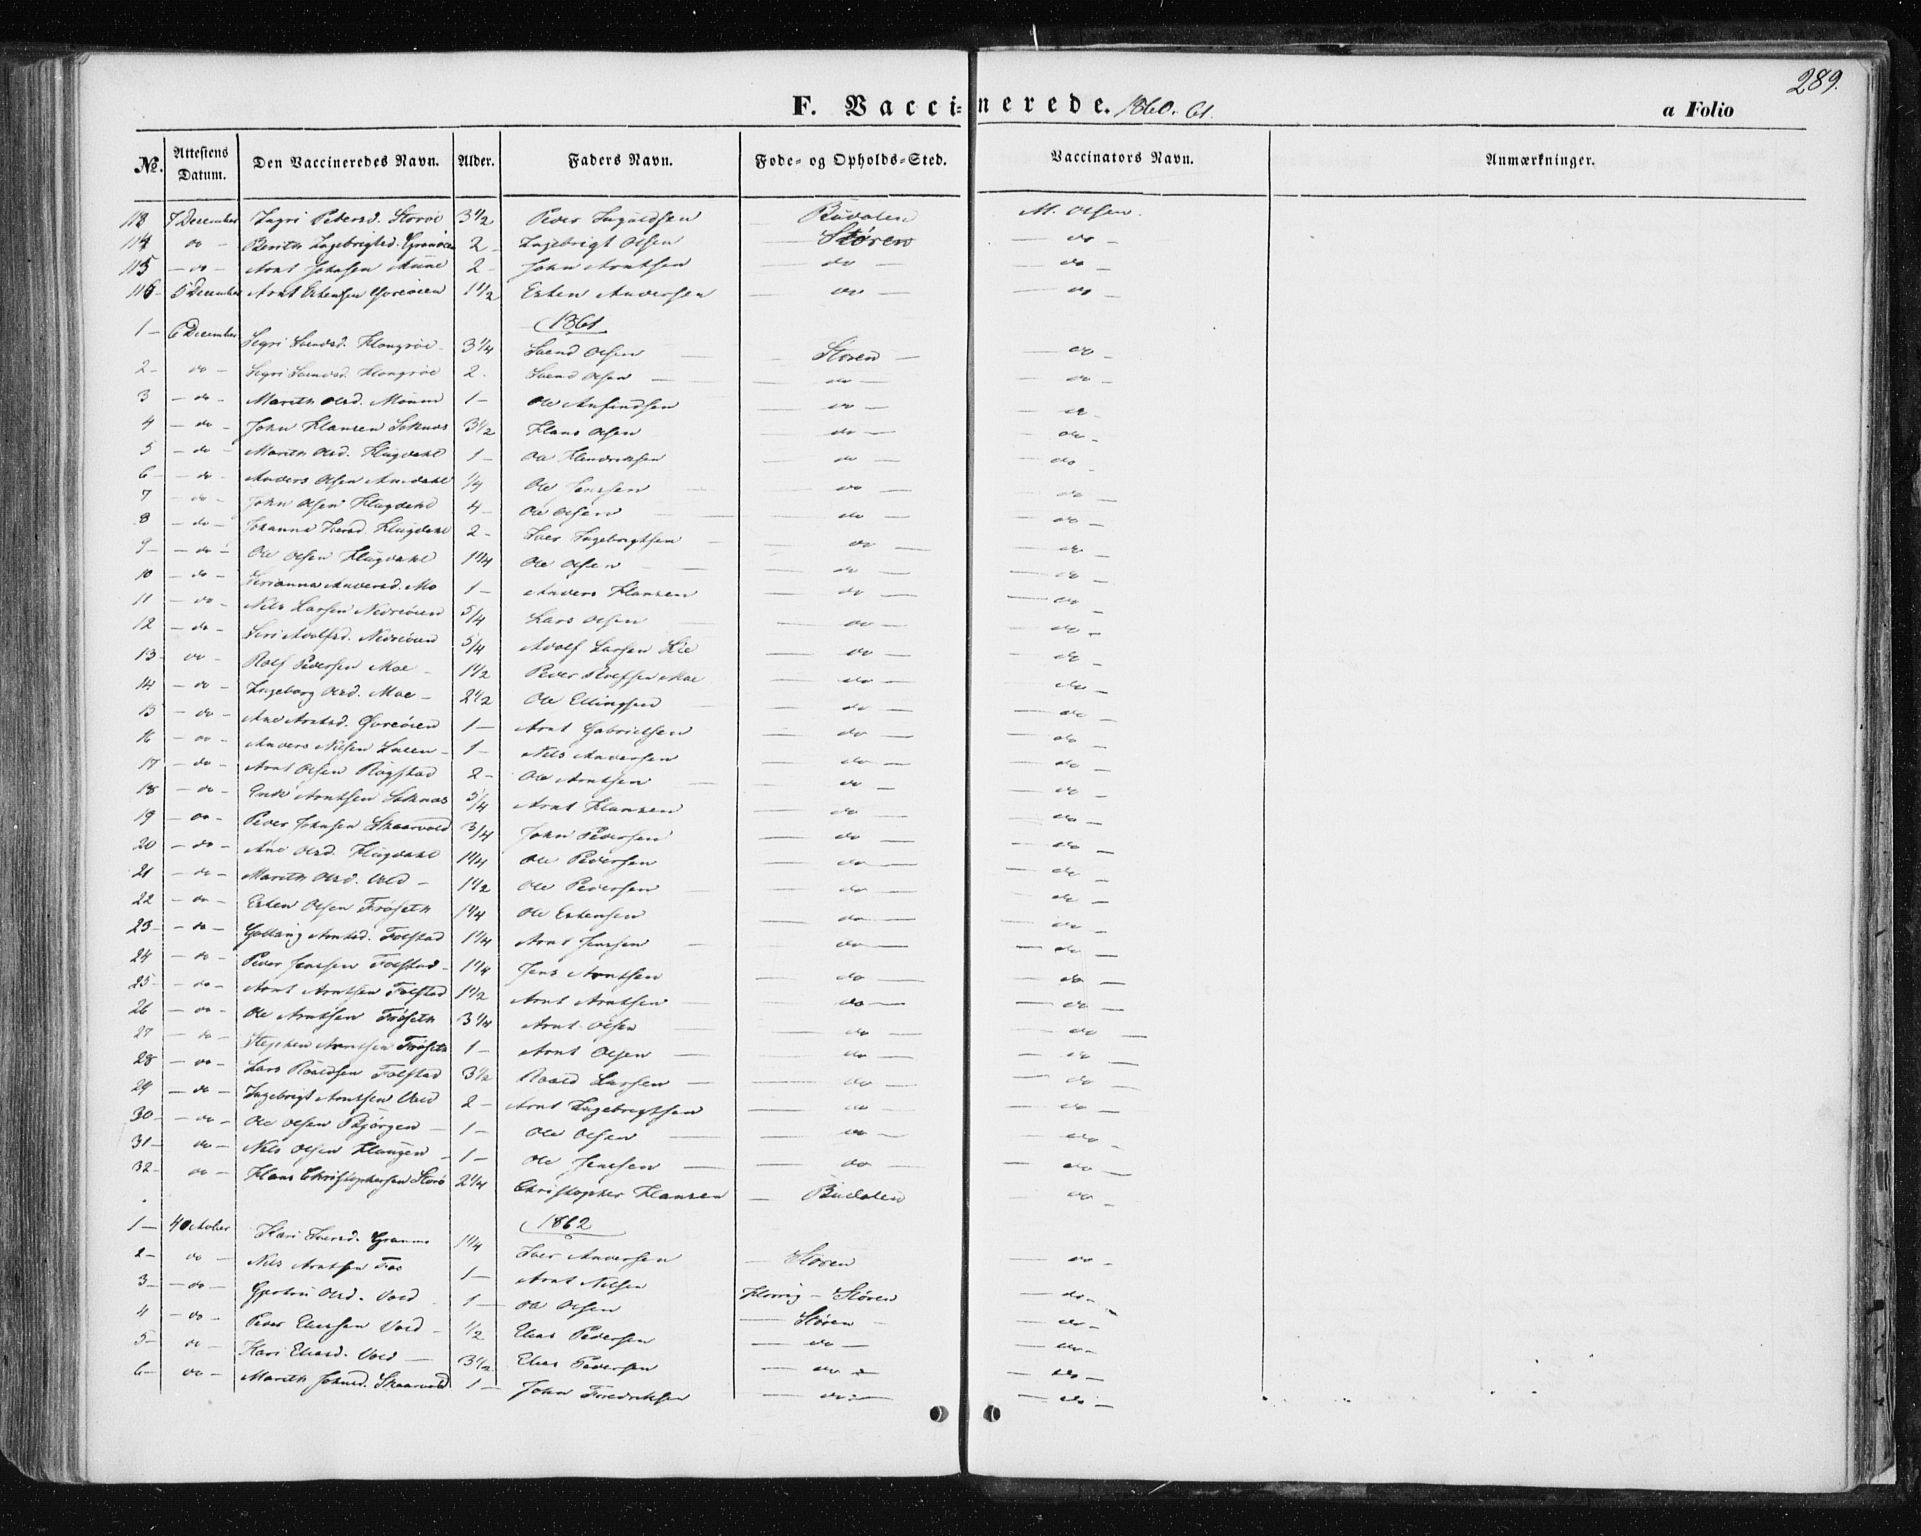 289.
F. Vaccinerede. 1860-61.
a Folio
No. Attestens Datum. Den Vaccineredes Navn. Alder. Faders Navn. Føde- og Opholds-Sted. Vaccinators Navn. Anmærkninger.
113 7 December Ingri Pedersd. Storøe 3 1/2 Peder Ingvaldsen Budalen M. Olsen.
114 do - Berith Ingebrigtsd. Granøien 2 - Ingebrigt Olsen Støren do -
115 - do - Arnt Johnsen Aune 2 - John Arntsen do do -
116 - 5 December Arnt Estensen Øvreøien 1 1/2 Esten Andersen do do -
1861
1 - 6 December Segri Svendsd. Haugrøe 3 1/4 Svend Olsen Støren do -
2 - do - Segri Svendsd. Haugrøe 2 - Svend Olsen do do -
3 - do - Marith Olsd. Moum 1 - Ole Anfindsen do do -
4 - do - John Hansen Soknæs 3 1/2 Hans Olsen do do -
5 - do - Marith Olsd. Hugdahl 1 - Ole Hendriksen do do
6 - do - Anders Olsen Amdahl 1/4 Ole Jenssen do do -
7 - do - John Olsen Hugdahl 4 - Ole Olsen do do -
8 - do - Johanna Iversd. Hugdahl 2 - Iver Ingebrigtsen do do -
9 - do - Ole Olsen Hugdahl 1 1/4 Ole Olsen do do -
10 - do - Serianna Andersd. Mo 1 - Anders Hansen do do -
11 - do - Nils Larsen Nedreøien 5/4 Lars Olsen do do -
12 - do - Siri Adolfsd. Nedreøien 5/4 Adolf Larsen Lie do do -
13 - do - Rolf Pedersen Moe - 1 1/2 Peder Rolfsen Moe do do -
14 - do - Ingeborg Olsd. Moe - 2 1/2 Ole Ellingsen do do -
15 - do - Ane Arntsd. Øvreøien 1 - Arnt Gabrielsen do do -
16 - do - Anders Nilsen Lueen - 1 - Nils Andersen do do -
17 - do - Arnt Olsen Rogstad 2 - Ole Arntsen do do -
18 - do - Arntsen Soknæs 5/4 Arnt Hansen do do -
19 - do - Peder Johnsen Skaarvold 3/4 John Pedersen do do -
20 - do - Ane Olsd. Hugdahl 1 1/4 Ole Pedersen do do -
21 - do - Marith Olsd. Vold - 1 1/2 Ole Pedersen do do -
22 - do - Esten Olsen Frøseth 1 1/4 Ole Estensen do do -
23 - do - Arntsd. Folstad 1 1/4 Arnt Jenssen do do -
24 - do - Peder Jenssen Folstad - 1 1/4 Jens Arntsen do do -
25 - do - Arnt Arntsen Folstad 1 1/2 Arnt Arntsen do do -
26 - do - Ole Arntsen Frøseth 3 1/4 Arnt Olsen do do -
27 - do - Stephen Arntsen Frøseth 1 - Arnt Olsen do do -
28 - do - Lars Roaldsen Folstad 3 1/2 Roald Larsen do do -
29 - do - Ingebrigt Arntsen Vold 2 - Arnt Ingebrigtsen do do -
30 - do - Ole Olsen Bjørgen - 1 - Ole Olsen do do -
31 - do - Nils Olsen Haugen - 1 - Ole Jenssen do do -
32 - do - Hans Christophersen Storø 2 1/4 Christopher Hansen Budalen do -
1862
1 - 4 October Kari Iversd. Granmo 1 1/4 Iver Andersen Støren do -
2 - do - Nils Arntsen Foe 1 - Arnt Nilsen Horrig - Støren do -
3 - do - Olsd. Vold 1 - Ole Olsen Støren do -
4 - do - Peder Eliassen Vold - 1/2 Elias Pedersen do do -
5 - do - Kari Eliasd. Vold - 3 1/2 Elias Pedersen do do -
6 - do - Marith Johnsd. Skaarvold 1 - John Fredriksen do do -